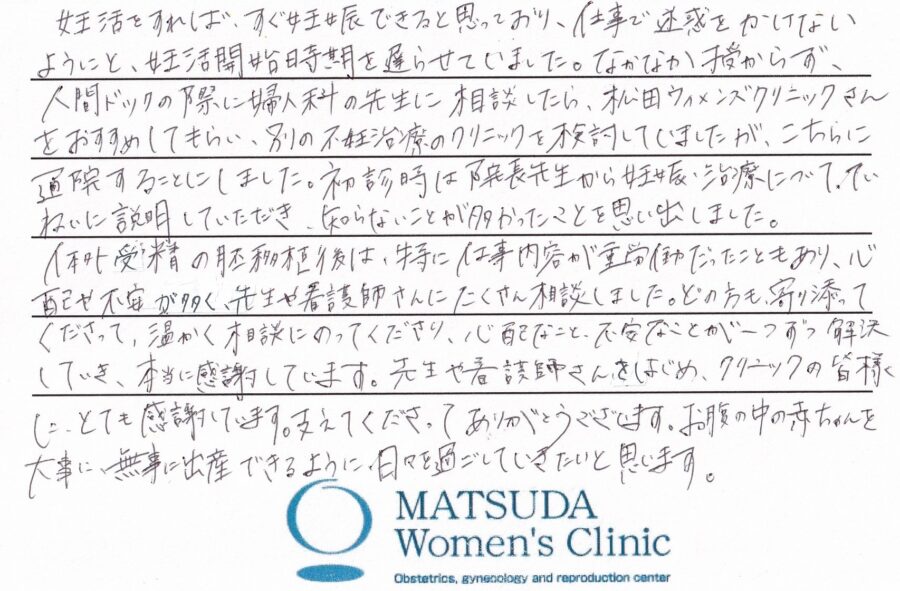 妊活をすれば、すぐ妊娠できると思っており、仕事で迷惑をかけない
ようにと、妊活開始時期を遅らせていました。なかなか授からず、
人間ドックの際に婦人科の先生に相談したら、松田ウィメンズクリニックさん
をおすすめしてもらい、別の不妊治療のクリニックを検討していましたが、こちらに
通院することにしました。初診時は院長先生から妊娠・治療について、てい
ねいに説明していただき、知らないことが多かったことを思い出しました。
体外受精の胚移植後は、特に仕事内容が重労働だったこともあり、心
配や不安が多く、先生や看護師さんにたくさん相談しました。どの方も、寄り添って
くださって、温かく相談にのってくださり、心配なこと、不安なことが一つずつ解決
していき、本当に感謝しています。先生や看護師さんをはじめ、クリニックの皆様
に、とても感謝しています。支えてくださってありがとうございます。お腹の中の赤ちゃんを
大事に、無事に出産できるように、日々を過ごしていきたいと思います。
MATSUDA
Women's Clinic
Obstetrics, gynecology and reproduction center